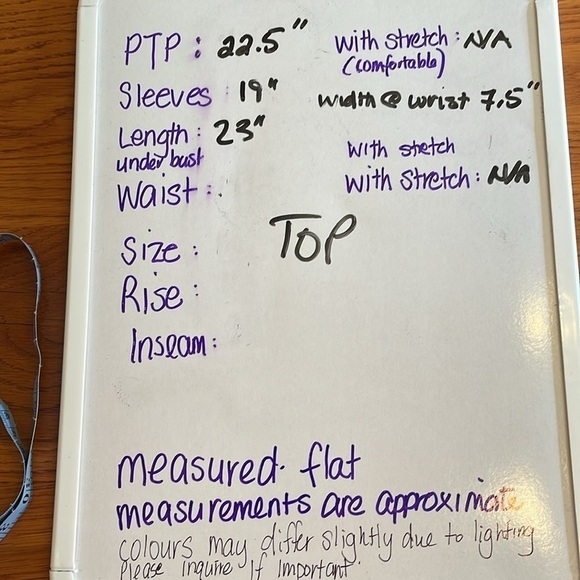 PTP : 22.5" with stretch : N/A
(comfortable)
Sleeves : 19" width @ wrist 7.5"
Length : 23"
under bust with stretch
Waist : with stretch : N/A
Size : TOP
Rise :
Inseam :
measured flat
measurements are approximate
colours may differ slightly due to lighting
Please inquire if important